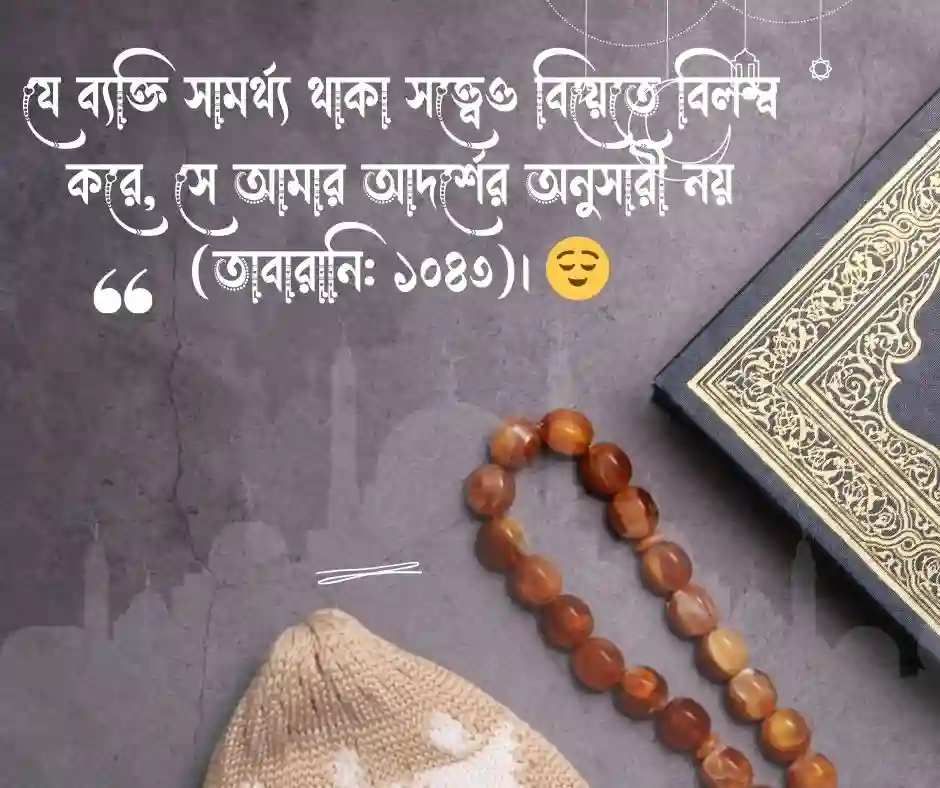 যে ব্যক্তি সামর্থ্য থাকা সত্ত্বেও বিয়েতে বিলম্ব
করে, সে আমার আদর্শের অনুসারী নয়
“ (তাবারানি: ১০৪৩)। 😌